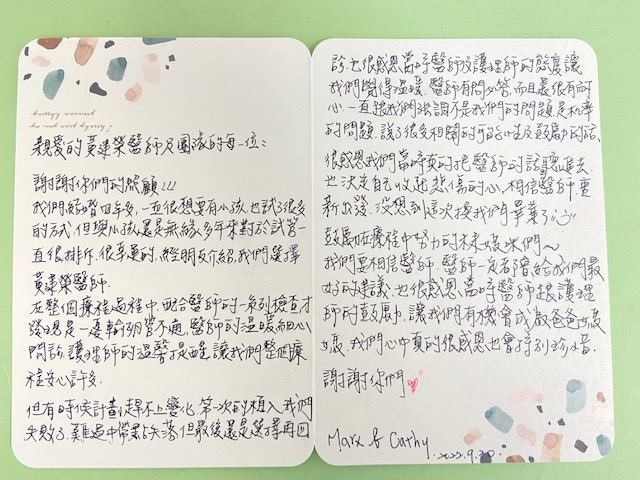 親愛的黃建榮醫師及團隊的每一位：
謝謝你們的照顧!!!
我們結婚四年多,一直很想要有小孩,也試了很多
的方式,但與小孩還是無緣,多年來對於試管一
直很排斥.很幸運的,經朋友介紹,我們選擇
黃建榮醫師.
在整個療程過程中,配合醫師的一系列檢查才
發現是一邊輸卵管不通,醫師的溫暖細心
問診,護理師的溫馨提醒,讓我們整個療
程安心許多.
但有時候計劃趕不上變化.第一次的植入我們
失敗了.難過中帶點失落,但最後還是選擇再回
診.也很感恩當時醫師及護理師的態度讓
我們覺得溫暖.醫師有問必答,而且還很有耐
心一直跟我們強調不是我們的問題是机率
的問題.說了很多相關的可能性及鼓勵的話.
很感恩我們當時真的把醫師的話聽進去,
也決定自己收起悲傷的心,相信醫師.重
新出發.沒想到這次換我們畢業了
鼓勵在療程中努力的準媽咪們~
我們要相信醫師.醫師一定會給我們最
好的建議.也很感恩當時醫師跟護理
師的鼓勵.讓我們有機會成為爸爸媽
媽.我們心中真的很感恩也會特別珍惜.
謝謝你們
Marx & Cathy.
2022.9.20.